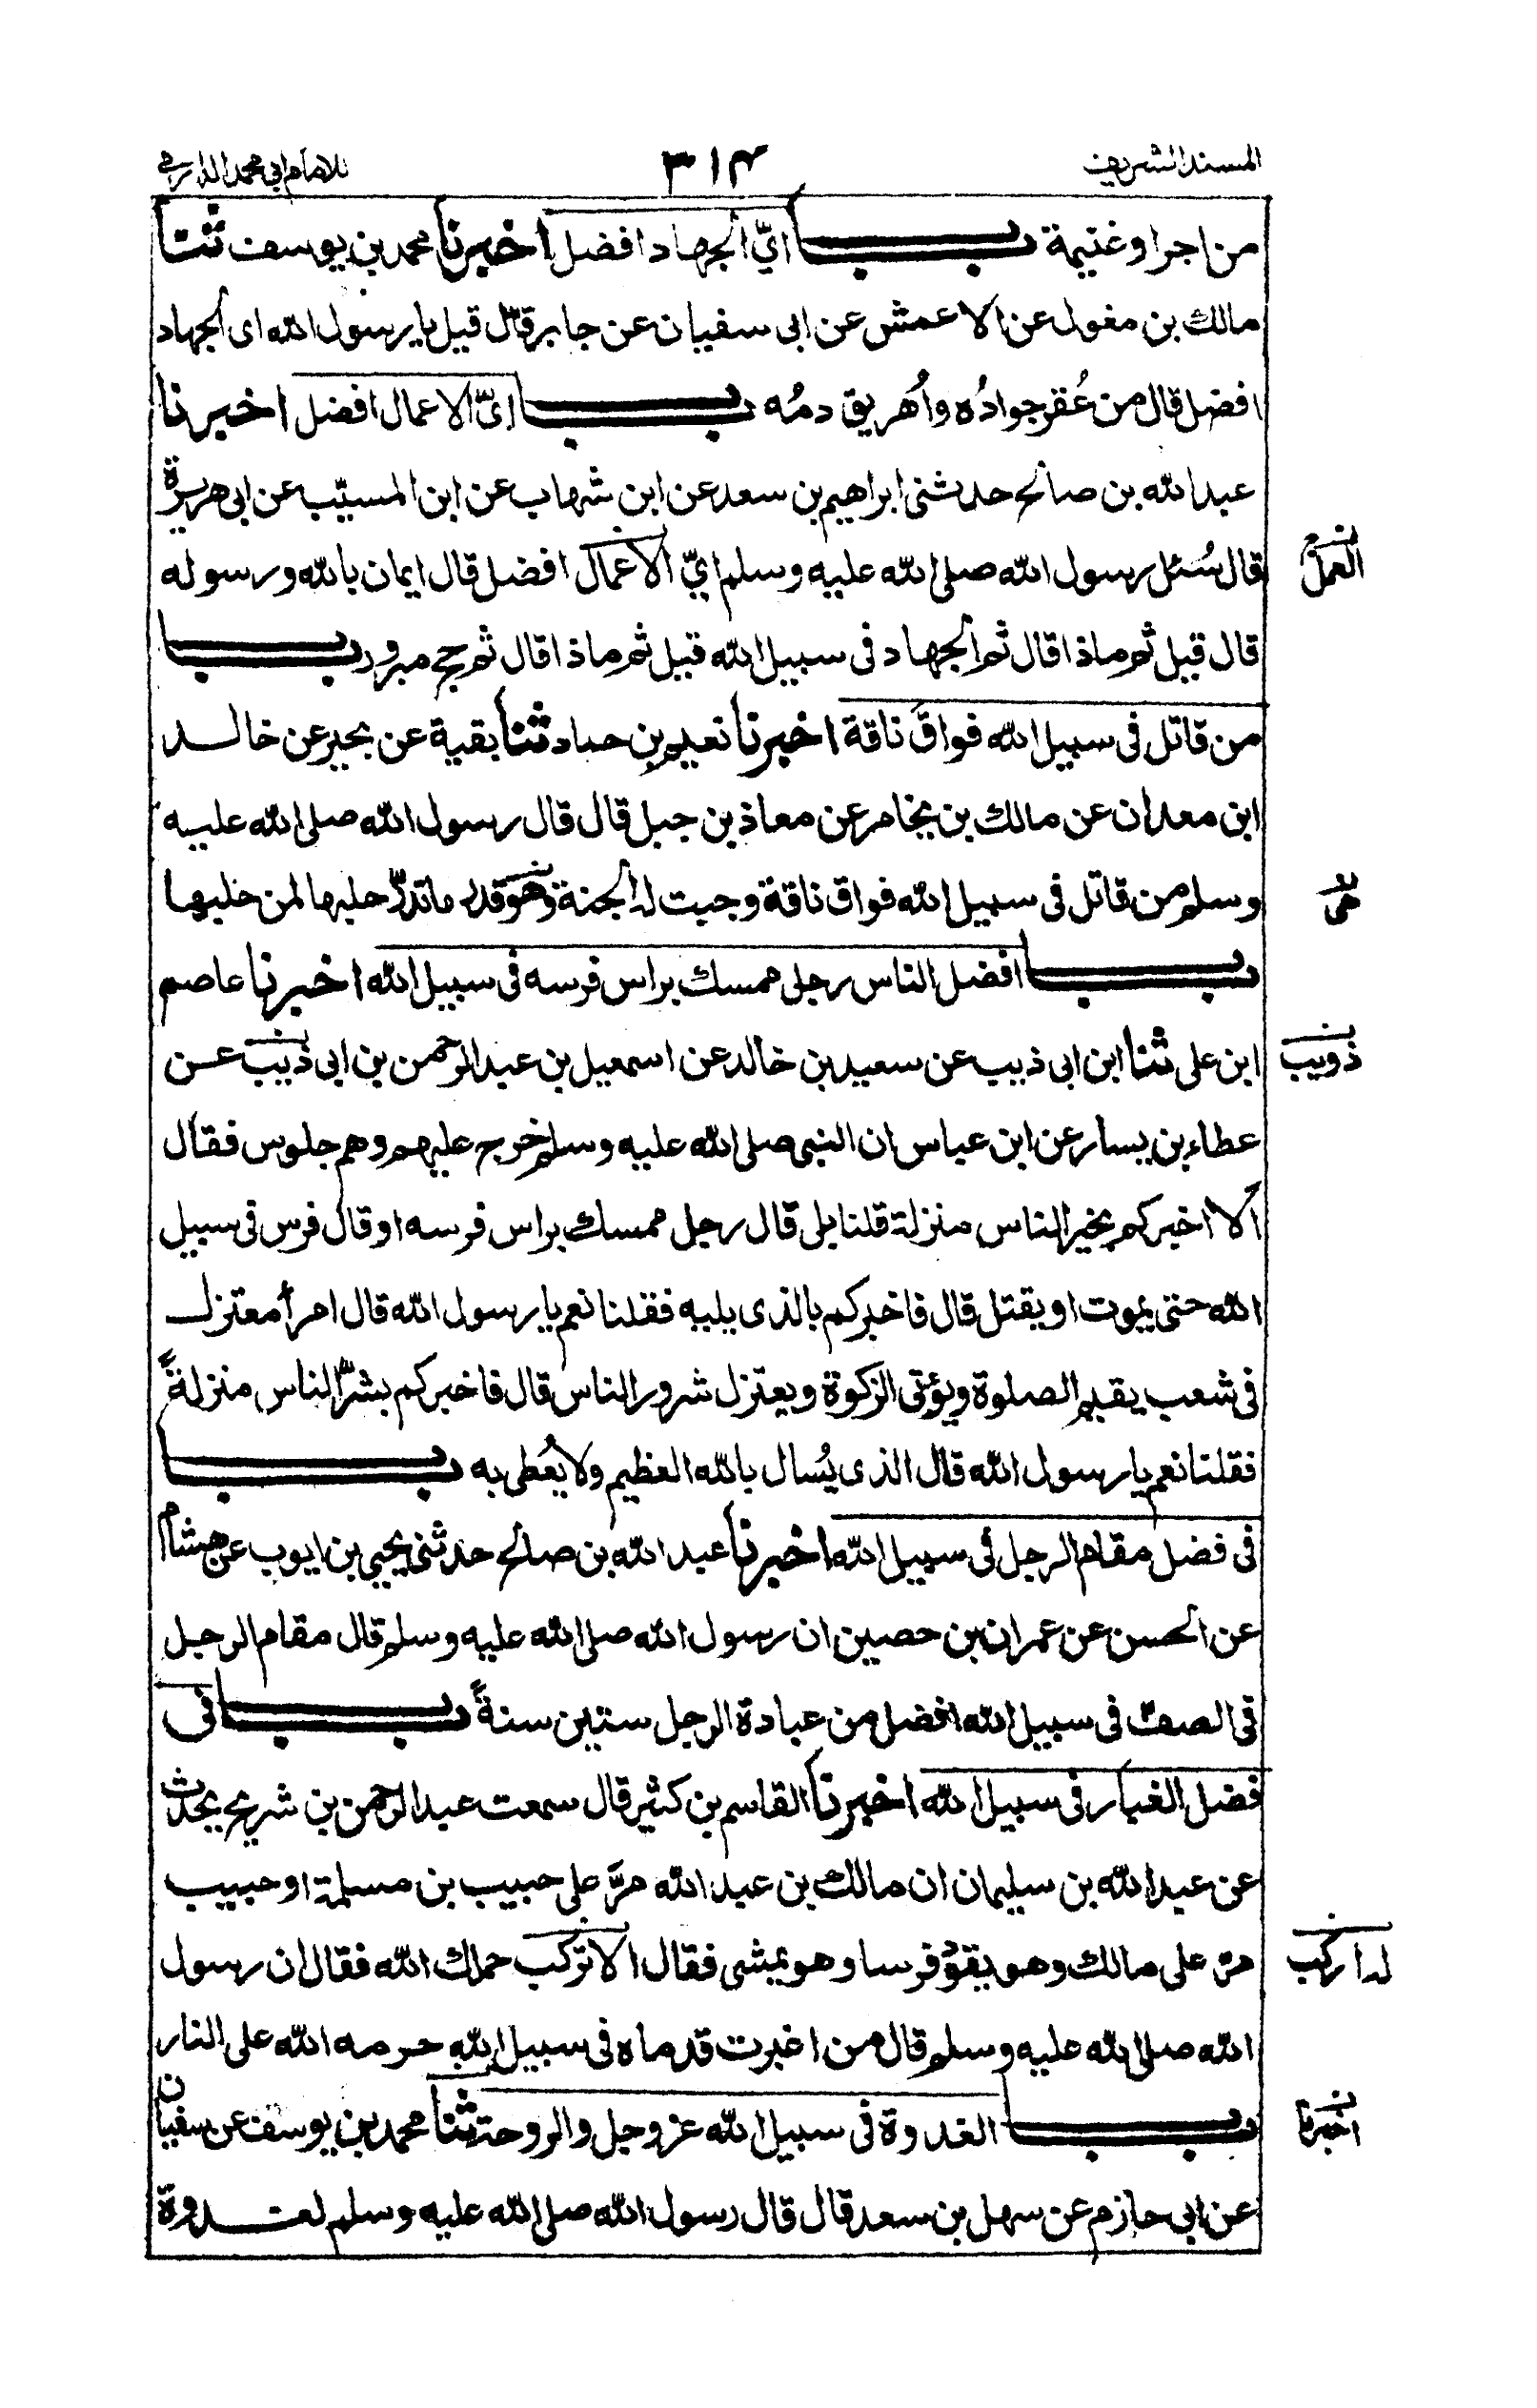 المسند الشريف ٣١٤ للامام ابي محمد الدارمي
من اجر او غنيمة باب ايّ الجهاد افضل اخبرنا محمد بن يوسف ثنا
مالك بن مغول عن الاعمش عن ابى سفيان عن جابر قال قيل يا رسول الله اى الجهاد
افضل قال من عُقر جوادُه واُهريق دمُه باب ايّ الاعمال افضل اخبرنا
عبد الله بن صالح حدثنى ابراهيم بن سعد عن ابن شهاب عن ابن المسيّب عن ابى هريرة
قال سُئل رسول الله صلى الله عليه وسلم ايّ الاعمال افضل قال ايمان بالله ورسوله
العمل
قال قيل ثم ماذا قال ثم الجهاد فى سبيل الله قيل ثم ماذا قال ثم حج مبرور باب
من قاتل فى سبيل الله فواق ناقة اخبرنا نعيم بن حماد ثنا بقية عن بحير عن خالد
ابن معدان عن مالك بن يخامر عن معاذ بن جبل قال قال رسول الله صلى الله عليه
وسلم من قاتل فى سبيل الله فواق ناقة وجبت له الجنة وهو قدر ما تدرّ حلبها لمن حلبها
هى
باب افضل الناس رجل ممسك براس فرسه فى سبيل الله اخبرنا عاصم
ابن على ثنا ابن ابى ذيب عن سعيد بن خالد عن اسمعيل بن عبد الرحمن بن ابى ذيب عن
ذويب
عطاء بن يسار عن ابن عباس ان النبى صلى الله عليه وسلم خرج عليهم وهم جلوس فقال
الا اخبركم بخير الناس منزلة قلنا بلى قال رجل ممسك براس فرسه او قال فرس فى سبيل
الله حتى يموت او يقتل قال فاخبركم بالذى يليه فقلنا نعم يا رسول الله قال امرأ معتزل
فى شعب يقيم الصلوة ويؤتى الزكوة ويعتزل شرور الناس قال فاخبركم بشرّ الناس منزلةً
فقلنا نعم يا رسول الله قال الذى يُسال بالله العظيم ولا يُعطى به باب
فى فضل مقام الرجل فى سبيل الله اخبرنا عبد الله بن صالح حدثنى يحيى بن ايوب عن هشام
عن الحسن عن عمران بن حصين ان رسول الله صلى الله عليه وسلم قال مقام الرجل
فى الصفّ فى سبيل الله افضل من عبادة الرجل ستين سنةً باب فى
فضل الغبار فى سبيل الله اخبرنا القاسم بن كثير قال سمعت عبد الرحمن بن شريح يحدث
عن عبد الله بن سليمان ان مالك بن عبد الله مرَّ على حبيب بن مسلمة او حبيب
مر على مالك وهو يقود فرسا وهو يمشى فقال الا تركب حملك الله فقال ان رسول
له اركب
الله صلى الله عليه وسلم قال من اغبرت قدماه فى سبيل الله حرمه الله على النار
باب الغدوة فى سبيل الله عز وجل والروحة ثنا محمد بن يوسف عن سفيان
اخبرنا
عن ابى حازم عن سهل بن سعد قال قال رسول الله صلى الله عليه وسلم لغدوة